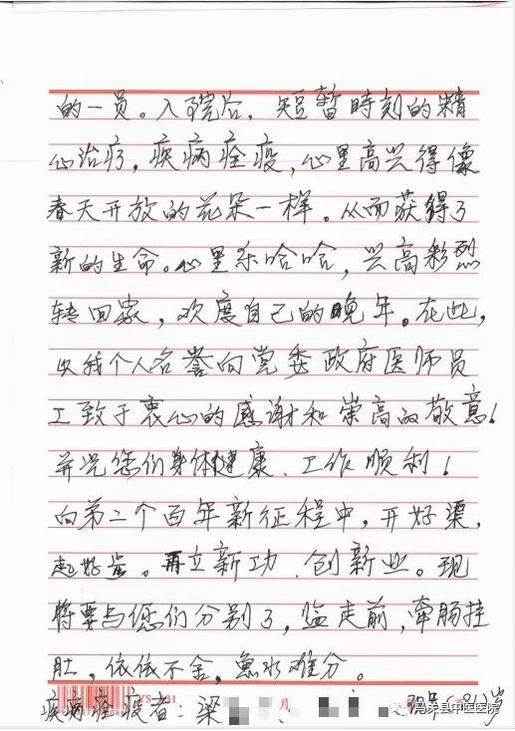 的一员。入院后，短暂時刻的精
心治疗，疾病痊疫，心里高兴得像
春天开放的花朵一样。从而获得了
新的生命。心里乐哈哈，兴高彩烈
转回家，欢度自己的晚年。在此，
以我个人名誉向党委政府医师员
工致于衷心的感谢和崇高的敬意！
并祝您们身体健康、工作顺利！
向第二个百年新征程中，开好渠，
起好步。再立新功、创新业。现
将要与您们分别了，临走前，牵肠挂
肚，依依不舍，鱼水难分。
疾病痊疫者：梁 月 (81)岁
岛头县中医医院